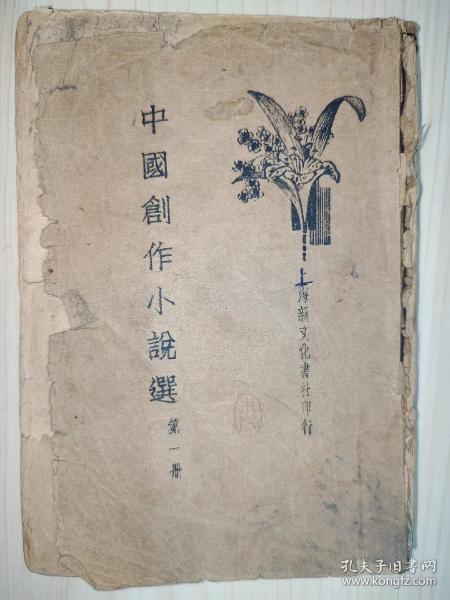 中國創作小說選
第一冊
上海新文化書社印行
孔夫子旧书网
www.kongfz.com